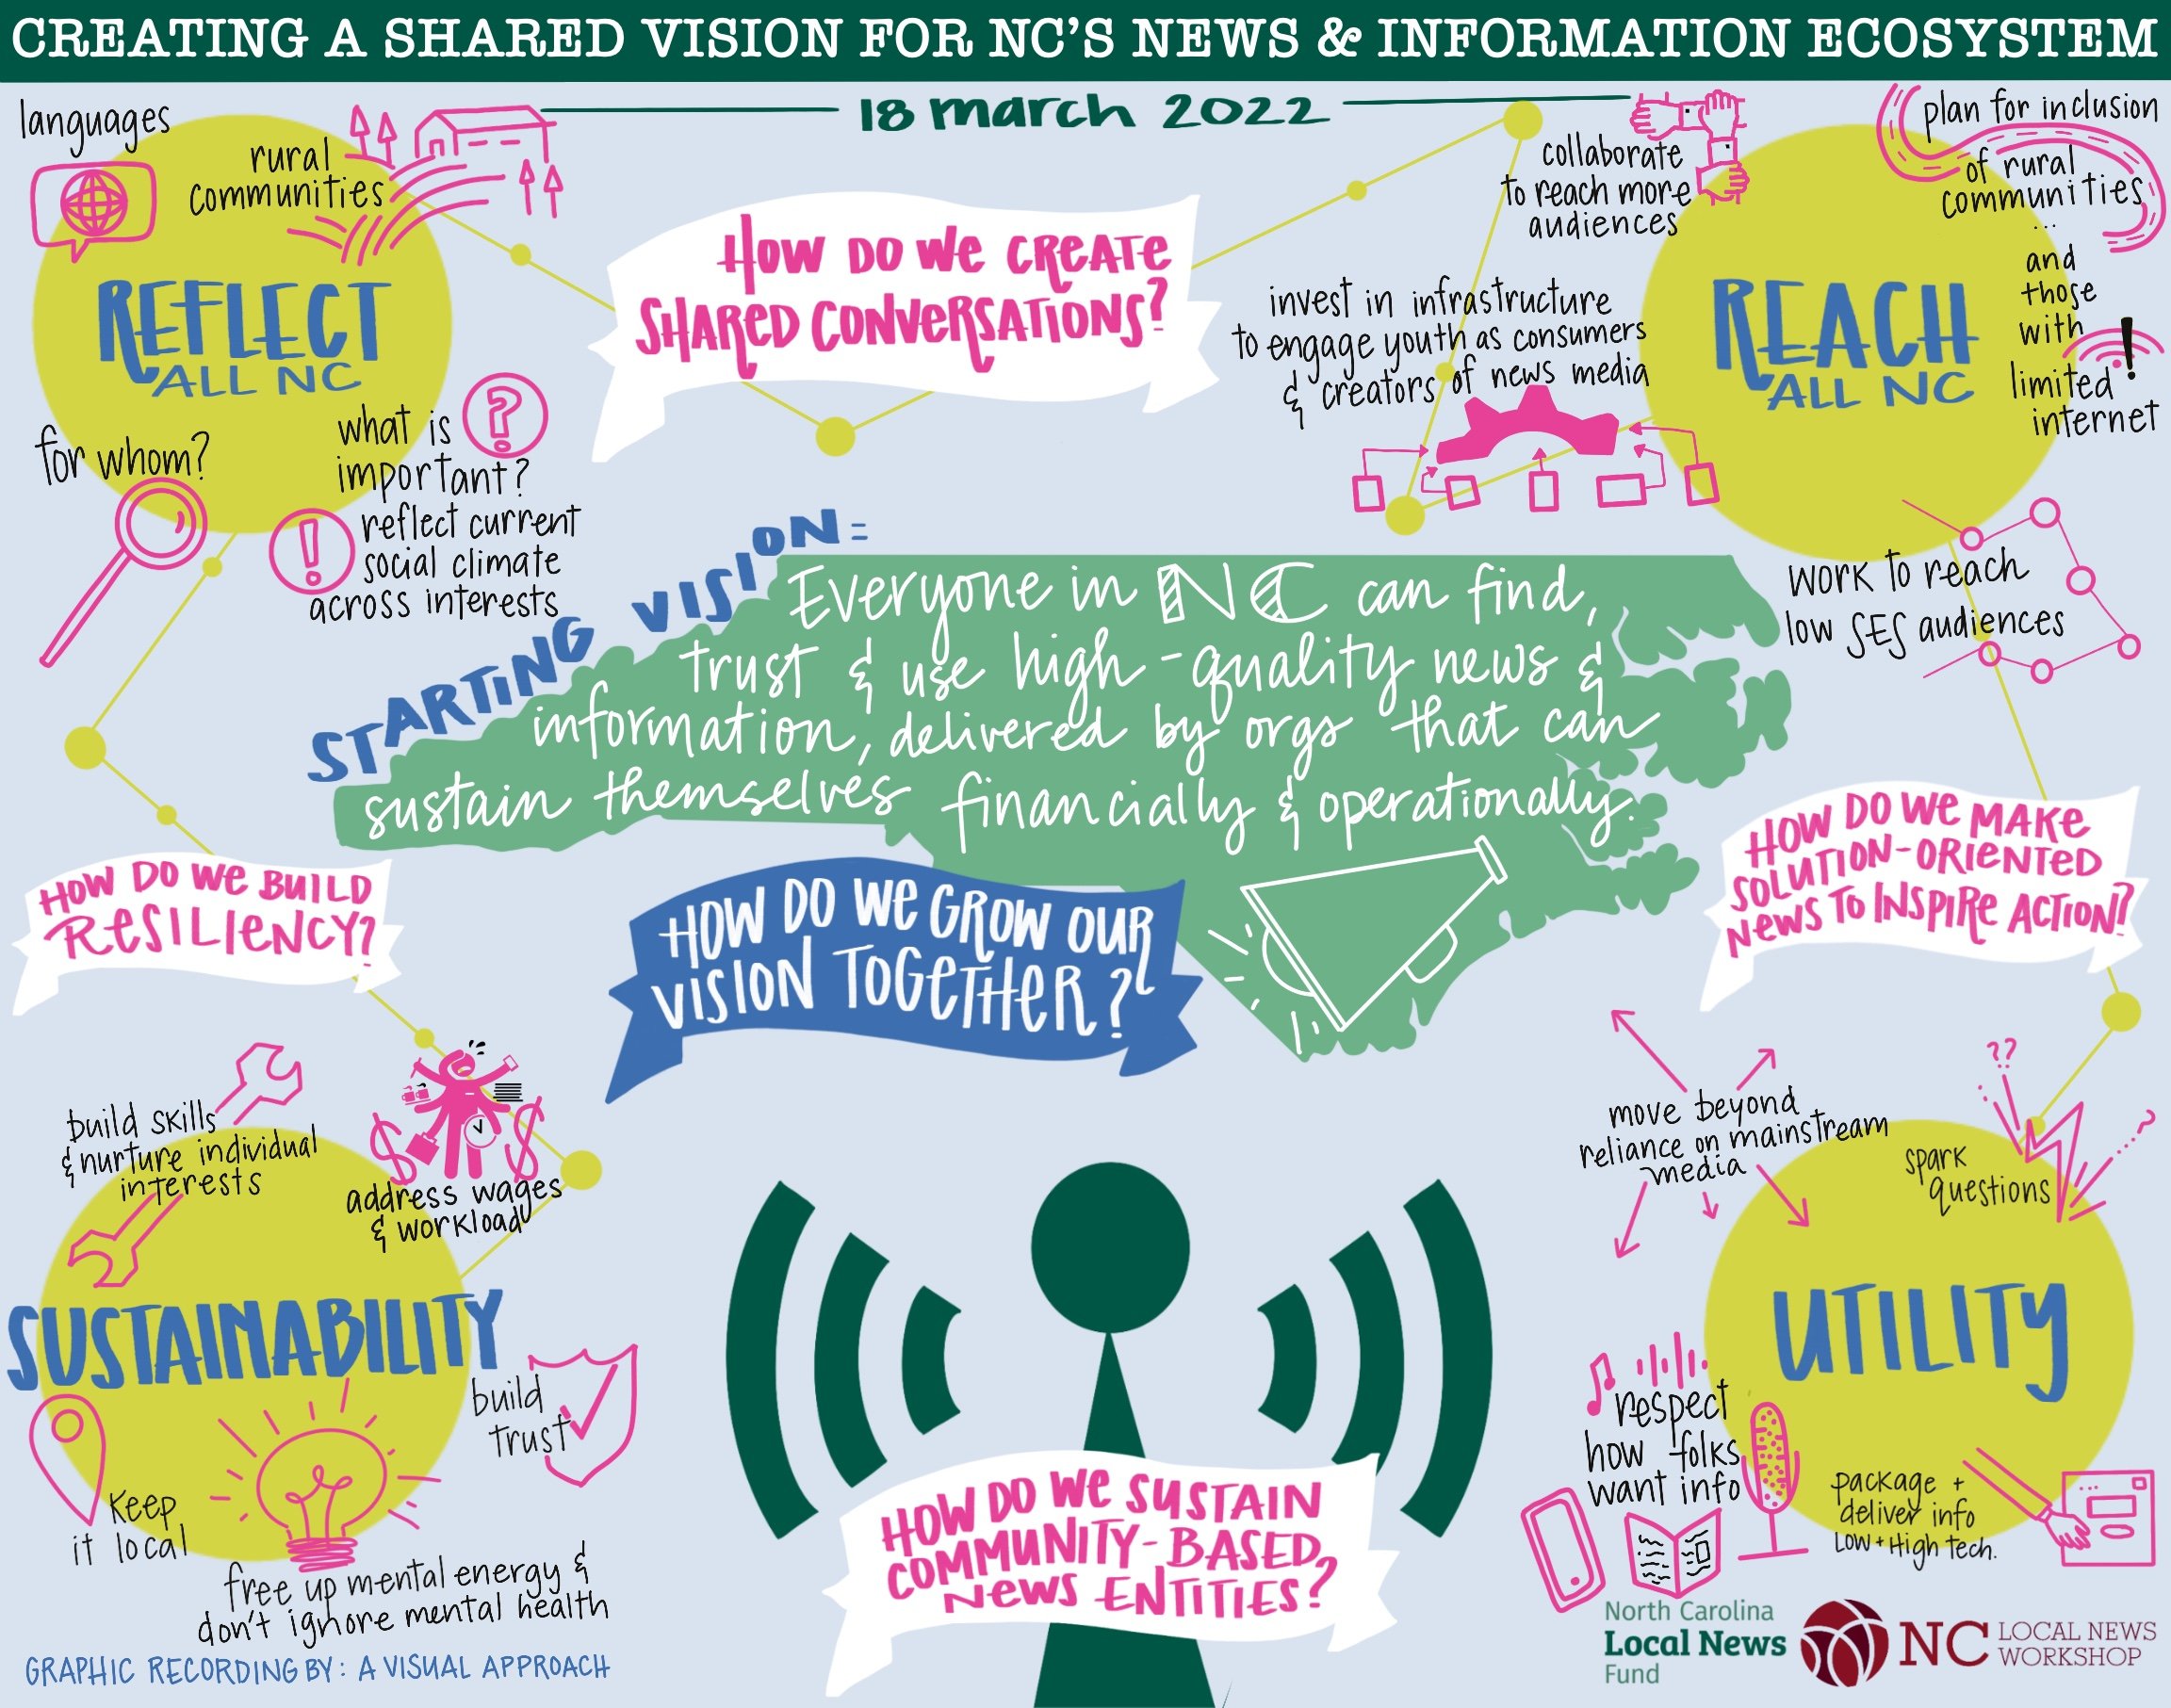 CREATING A SHARED VISION FOR NC'S NEWS & INFORMATION ECOSYSTEM
18 march 2022
languages
rural
communities
REFLECT
ALL NC
for whom?
what is
important?
reflect current
social climate
across interests
HOW DO WE CREATE
SHARED CONVERSATIONS?
collaborate
to reach more
audiences
invest in infrastructure
to engage youth as consumers
& creators of news media
plan for inclusion
of rural
communities
...
and
those
with
limited
internet
REACH
ALL NC
work to reach
low SES audiences
STARTING VISION:
Everyone in NC can find,
trust & use high-quality news &
information, delivered by orgs that can
sustain themselves financially & operationally.
HOW DO WE BUILD
RESILIENCY?
HOW DO WE GROW OUR
VISION TOGETHER?
HOW DO WE MAKE
SOLUTION-ORIENTED
NEWS TO INSPIRE ACTION?
build skills
& nurture individual
interests
address wages
& workload
SUSTAINABILITY
build
trust
keep
it local
free up mental energy &
don't ignore mental health
HOW DO WE SUSTAIN
COMMUNITY-BASED
NEWS ENTITIES?
move beyond
reliance on mainstream
media
??
?
spark
questions
UTILITY
respect
how folks
want info
package +
deliver info
Low + High Tech.
GRAPHIC RECORDING BY: A VISUAL APPROACH
North Carolina
Local News
Fund
NC LOCAL NEWS
WORKSHOP